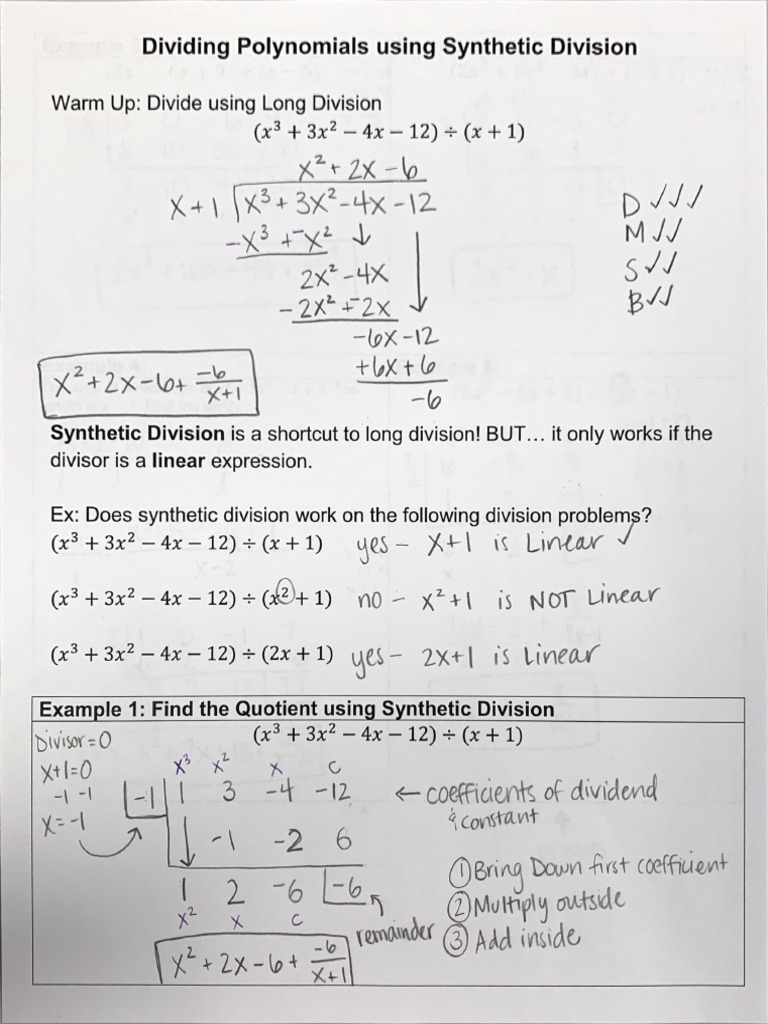 Dividing Polynomials using Synthetic Division
Warm Up: Divide using Long Division
(x³ + 3x² − 4x − 12) ÷ (x + 1)
x² + 2x − 6
x + 1 | x³ + 3x² − 4x − 12
−x³ +− x² ↓
2x² − 4x
− 2x² +− 2x ↓
−6x − 12
+6x + 6
−6
D ✓✓✓
M ✓✓
S ✓✓
B ✓✓
x² + 2x − 6 + −6/(x+1)
Synthetic Division is a shortcut to long division! BUT… it only works if the
divisor is a linear expression.
Ex: Does synthetic division work on the following division problems?
(x³ + 3x² − 4x − 12) ÷ (x + 1) yes – x+1 is Linear ✓
(x³ + 3x² − 4x − 12) ÷ (x² + 1) no – x²+1 is NOT Linear
(x³ + 3x² − 4x − 12) ÷ (2x + 1) yes – 2x+1 is Linear
Example 1: Find the Quotient using Synthetic Division
(x³ + 3x² − 4x − 12) ÷ (x + 1)
Divisor = 0
x+1=0
−1 −1
x=−1
x³ x² x c
−1 | 1 3 −4 −12 ← coefficients of dividend
& constant
↓ −1 −2 6
1 2 −6 |−6
x² x c
remainder
① Bring Down first coefficient
② Multiply outside
③ Add inside
x² + 2x − 6 + −6/(x+1)